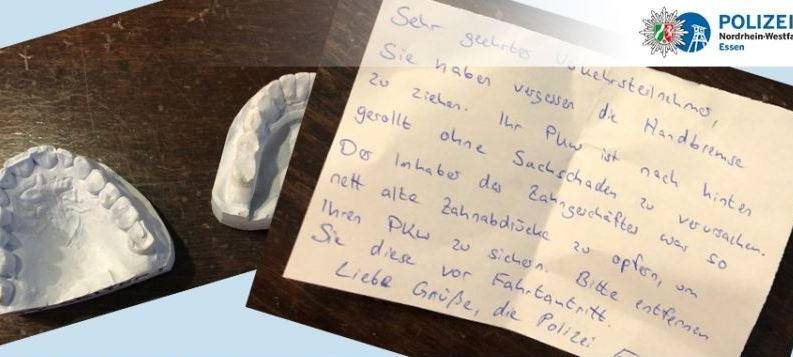 POLIZEI
Nordrhein-Westfa
Essen
Sehr geehrter Verkehrsteilnehmer,
Sie haben vergessen die Handbremse
zu ziehen. Ihr PKW ist nach hinten
gerollt ohne Sachschaden zu verursachen.
Der Inhaber des Zahngeschäftes war so
nett alte Zahnabdrücke zu opfern, um
Ihren PKW zu sichern. Bitte entfernen
Sie diese vor Fahrtantritt.
Liebe Grüße, die Polizei